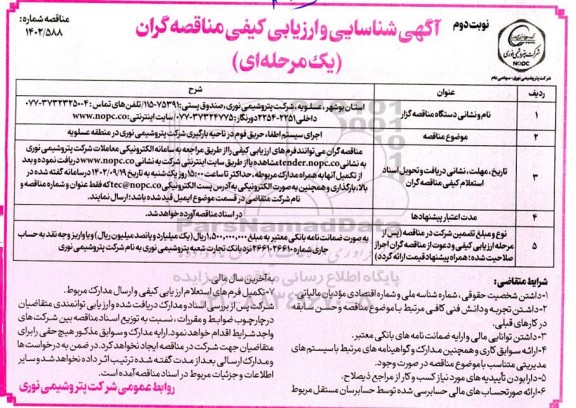 نوبت دوم
آگهی شناسایی و ارزیابی کیفی مناقصه گران
(یک مرحله‌ای)
مناقصه شماره:
۱۴۰۲/۵۸۸
NOPC
شرکت پتروشیمی نوری - سهامی عام
ردیف
عنوان
شرح
۱
نام و نشانی دستگاه مناقصه گزار
استان بوشهر، عسلویه، شرکت پتروشیمی نوری، صندوق پستی: ۷۵۳۹۱-۱۱۵/تلفن های تماس: ۴-۰۷۷۳۷۳۲۳۲۵۰
داخلی ۲۲۵۱-۲۲۵۴ دورنگار: ۳۷۳۲۴۷۷۵-۰۷۷ سایت اینترنتی: www.nopc.co
۲
موضوع مناقصه
اجرای سیستم اطفاء حریق فوم در ناحیه بارگیری شرکت پتروشیمی نوری در منطقه عسلویه
۳
تاریخ، مهلت، نشانی دریافت و تحویل اسناد
استعلام کیفی مناقصه گران
مناقصه گران می توانند فرم های ارزیابی کیفی را از طریق مراجعه به سامانه الکترونیکی معاملات شرکت پتروشیمی نوری
به نشانی tender.nopc.co مشاهده یا از طریق سایت اینترنتی شرکت به نشانی www.nopc.co دریافت نموده و بعد
از تکمیل آنها به همراه مدارک مربوطه، حداکثر تا ساعت ۱۵:۰۰ روز یک شنبه به تاریخ ۱۴۰۲/۰۹/۱۹ در سامانه گفته شده در
بالا، بارگذاری و همچنین به صورت الکترونیکی به آدرس پست الکترونیکی tec@nopc.co که فقط عنوان و شماره مناقصه و
نام شرکت متقاضی در قسمت موضوع ایمیل قید شده باشد؛ ارسال نمایند.
۴
مدت اعتبار پیشنهادها
در اسناد مناقصه آورده خواهد شد.
۵
نوع و مبلغ تضمین شرکت در مناقصه (پس از
مرحله ارزیابی کیفی و دعوت از مناقصه گران احراز
صلاحیت شده؛ همراه پیشنهاد قیمت ارائه گردد)
به صورت ضمانت نامه بانکی معتبر به مبلغ ۱,۵۰۰,۰۰۰,۰۰۰ ریال (یک میلیارد و پانصد میلیون ریال) و یا واریز وجه نقد به حساب
جاری شماره ۲۶۶۱۰۲۶۶۱۰ نزد بانک تجارت شعبه پتروشیمی نوری به نام شرکت پتروشیمی نوری
شرایط متقاضی:
۱- داشتن شخصیت حقوقی، شماره شناسه ملی و شماره اقتصادی مؤدیان مالیاتی.
۲- داشتن تجربه و دانش فنی کافی مرتبط با موضوع مناقصه و حسن سابقه
در کارهای قبلی.
۳- داشتن توانایی مالی و ارایه ضمانت نامه های بانکی معتبر.
۴- ارائه سوابق کاری و همچنین مدارک و گواهینامه های مرتبط با سیستم های
مدیریتی متناسب با موضوع مناقصه در صورت وجود.
۵- دارا بودن تأییدیه های مورد نیاز کسب و کار از مراجع ذیصلاح.
۶- ارائه صورتحساب های مالی حسابرسی شده توسط حسابرسان مستقل مربوط
به آخرین سال مالی.
۷- تکمیل فرم های استعلام ارزیابی کیفی و ارسال مدارک مربوط.
شرکت پس از بررسی اسناد و مدارک دریافت شده و ارزیابی توانمندی متقاضیان
در چارچوب ضوابط و مقررات، نسبت به توزیع اسناد مناقصه بین شرکت های
واجد شرایط اقدام خواهد نمود. ارایه مدارک و سوابق مذکور هیچ حقی را برای
متقاضیان جهت شرکت در مناقصه ایجاد نخواهد کرد. در ضمن به درخواست ها
و مدارک ارسالی بعد از مدت گفته شده ترتیب اثر داده نخواهد شد و سایر
اطلاعات و جزئیات مربوط در اسناد مناقصه آمده است.
روابط عمومی شرکت پتروشیمی نوری